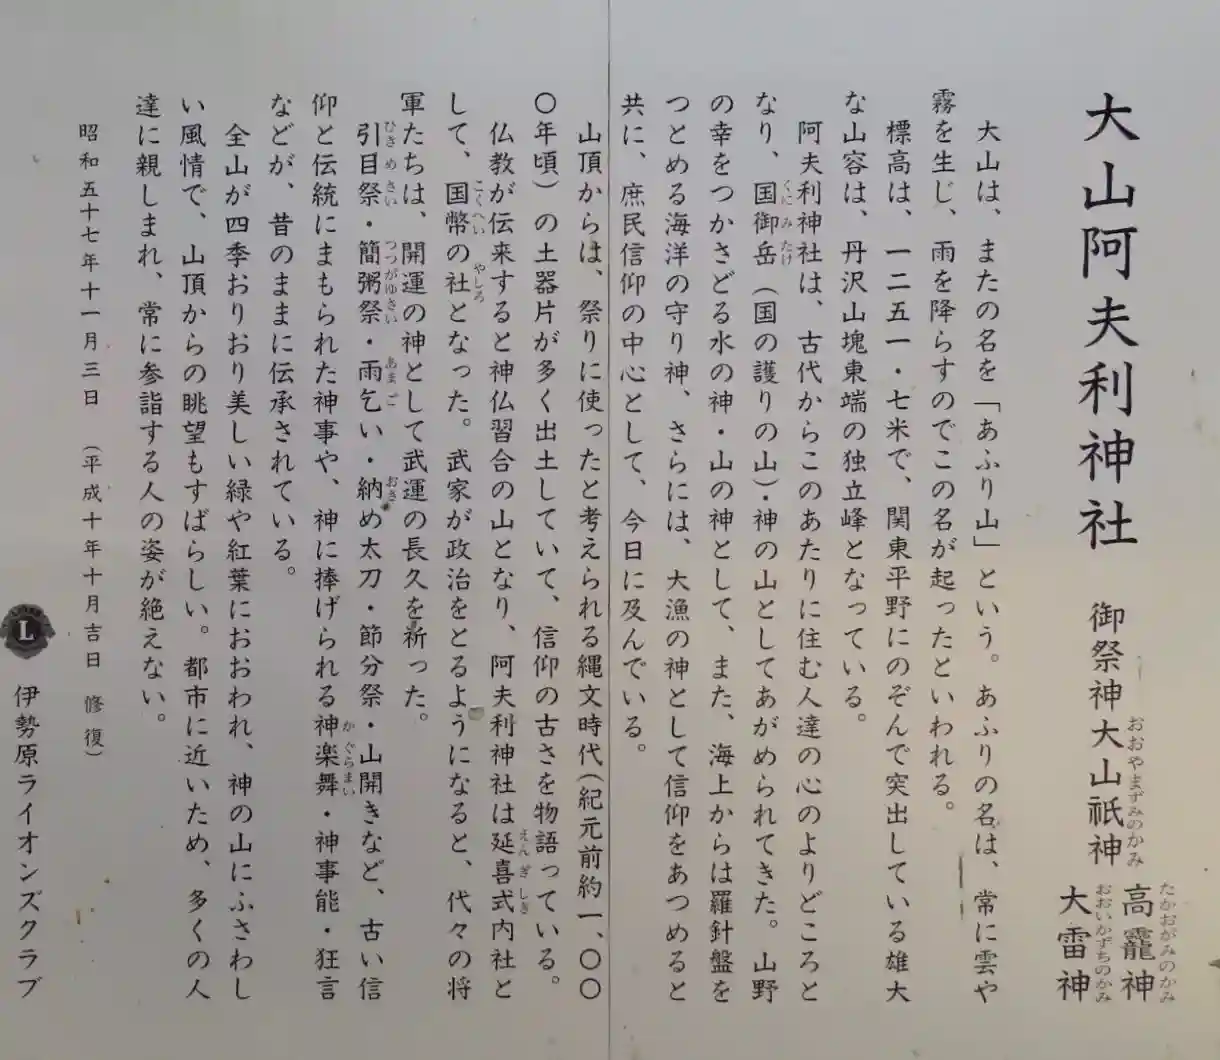 大山阿夫利神社　御祭神大山祇神　高龗神
大雷神
おおやまずみのかみ
たかおがみのかみ
おおいかずちのかみ
大山は、またの名を「あふり山」という。あふりの名は、常に雲や
霧を生じ、雨を降らすのでこの名が起ったといわれる。
標高は、一二五一・七米で、関東平野にのぞんで突出している雄大
な山容は、丹沢山塊東端の独立峰となっている。
阿夫利神社は、古代からこのあたりに住む人達の心のよりどころと
なり、国御岳（国の護りの山）・神の山としてあがめられてきた。山野
くにみたけ
の幸をつかさどる水の神・山の神として、また、海上からは羅針盤を
つとめる海洋の守り神、さらには、大漁の神として信仰をあつめると
共に、庶民信仰の中心として、今日に及んでいる。
山頂からは、祭りに使ったと考えられる縄文時代（紀元前約一、〇〇
〇年頃）の土器片が多く出土していて、信仰の古さを物語っている。
仏教が伝来すると神仏習合の山となり、阿夫利神社は延喜式内社と
えんぎしき
して、国幣の社となった。武家が政治をとるようになると、代々の将
こくへい　やしろ
軍たちは、開運の神として武運の長久を祈った。
引目祭・簡粥祭・雨乞い・納め太刀・節分祭・山開きなど、古い信
ひきめさい　つつがゆさい　あまご　おさ
仰と伝統にまもられた神事や、神に捧げられる神楽舞・神事能・狂言
かぐらまい
などが、昔のままに伝承されている。
全山が四季おりおり美しい緑や紅葉におおわれ、神の山にふさわし
い風情で、山頂からの眺望もすばらしい。都市に近いため、多くの人
達に親しまれ、常に参詣する人の姿が絶えない。
昭和五十七年十一月三日　（平成十年十月吉日　修復）
L
伊勢原ライオンズクラブ